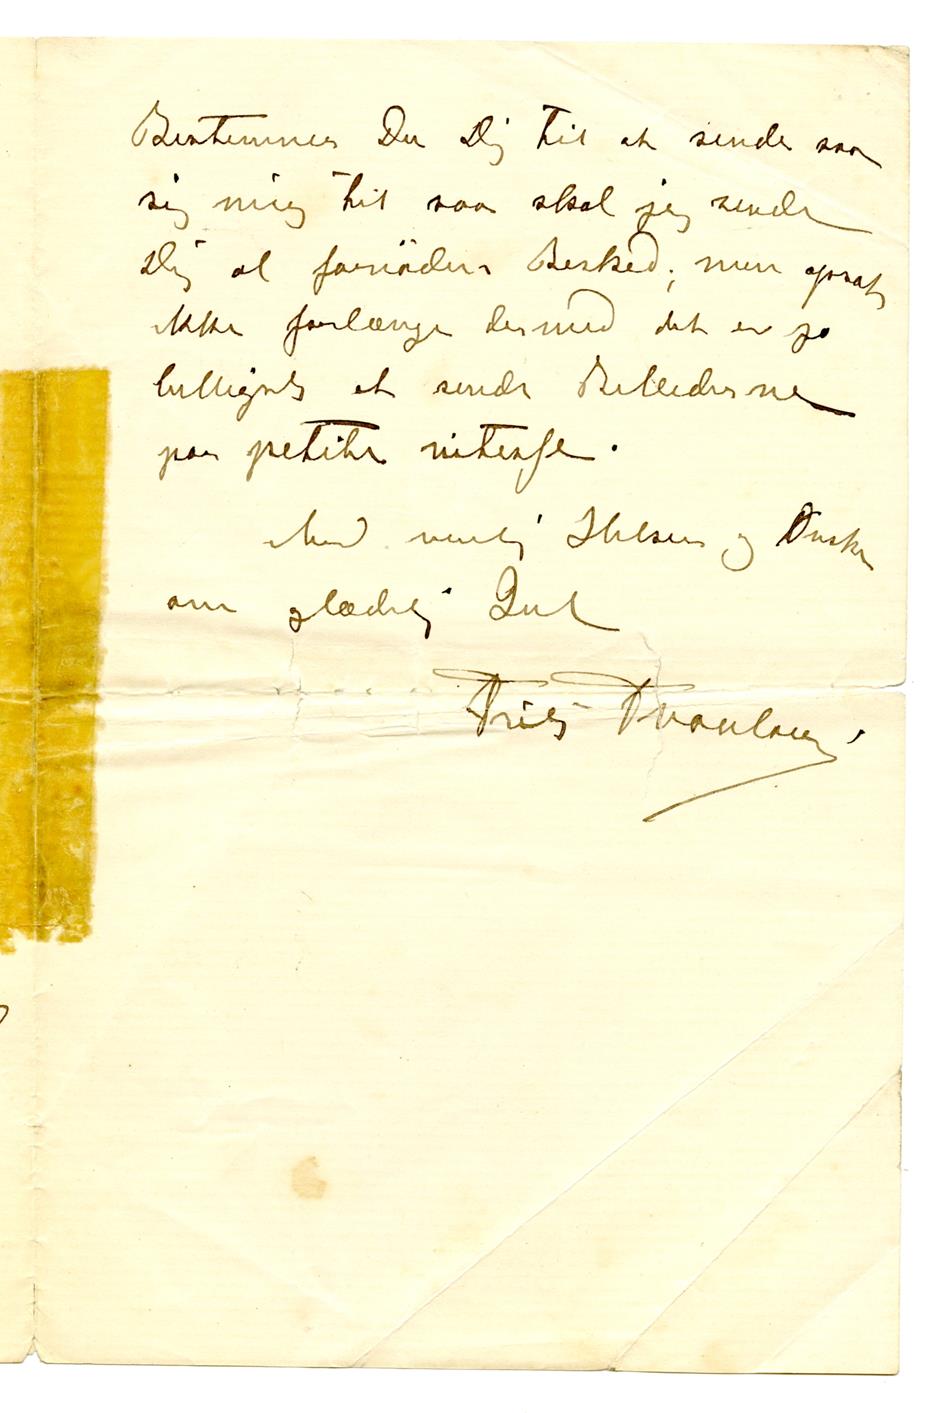 Bestemmer Du Dig til at sende saa
sig mig til saa skal jeg sende
Dig al fornöden Besked, men opsæt
ikke forlænge dermed det er jo
billigst at sende Billederne
par petite vitesse.
Med venlig Hilsen og Ønske
om glædelig Jul
Frits Thaulow.